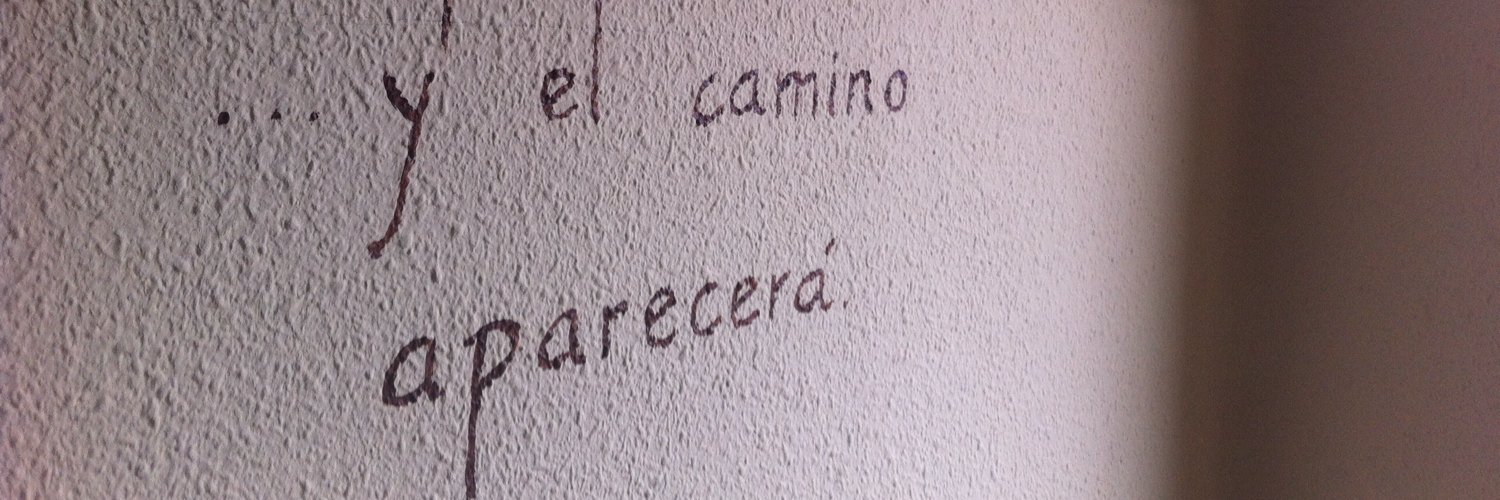 .... y el camino
aparecerá.